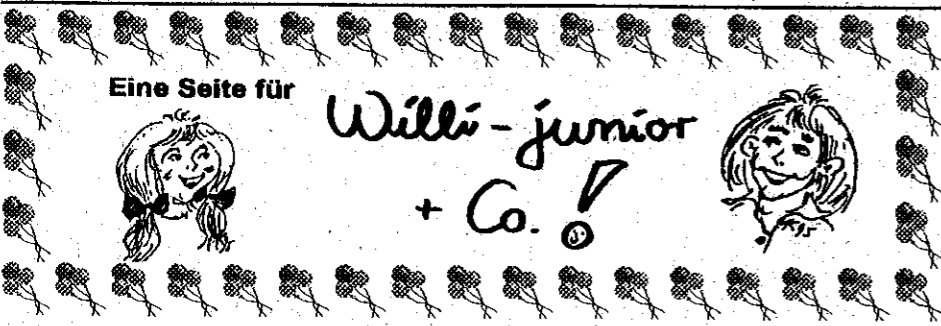 Eine Seite für
Willi-junior
+ Co.!